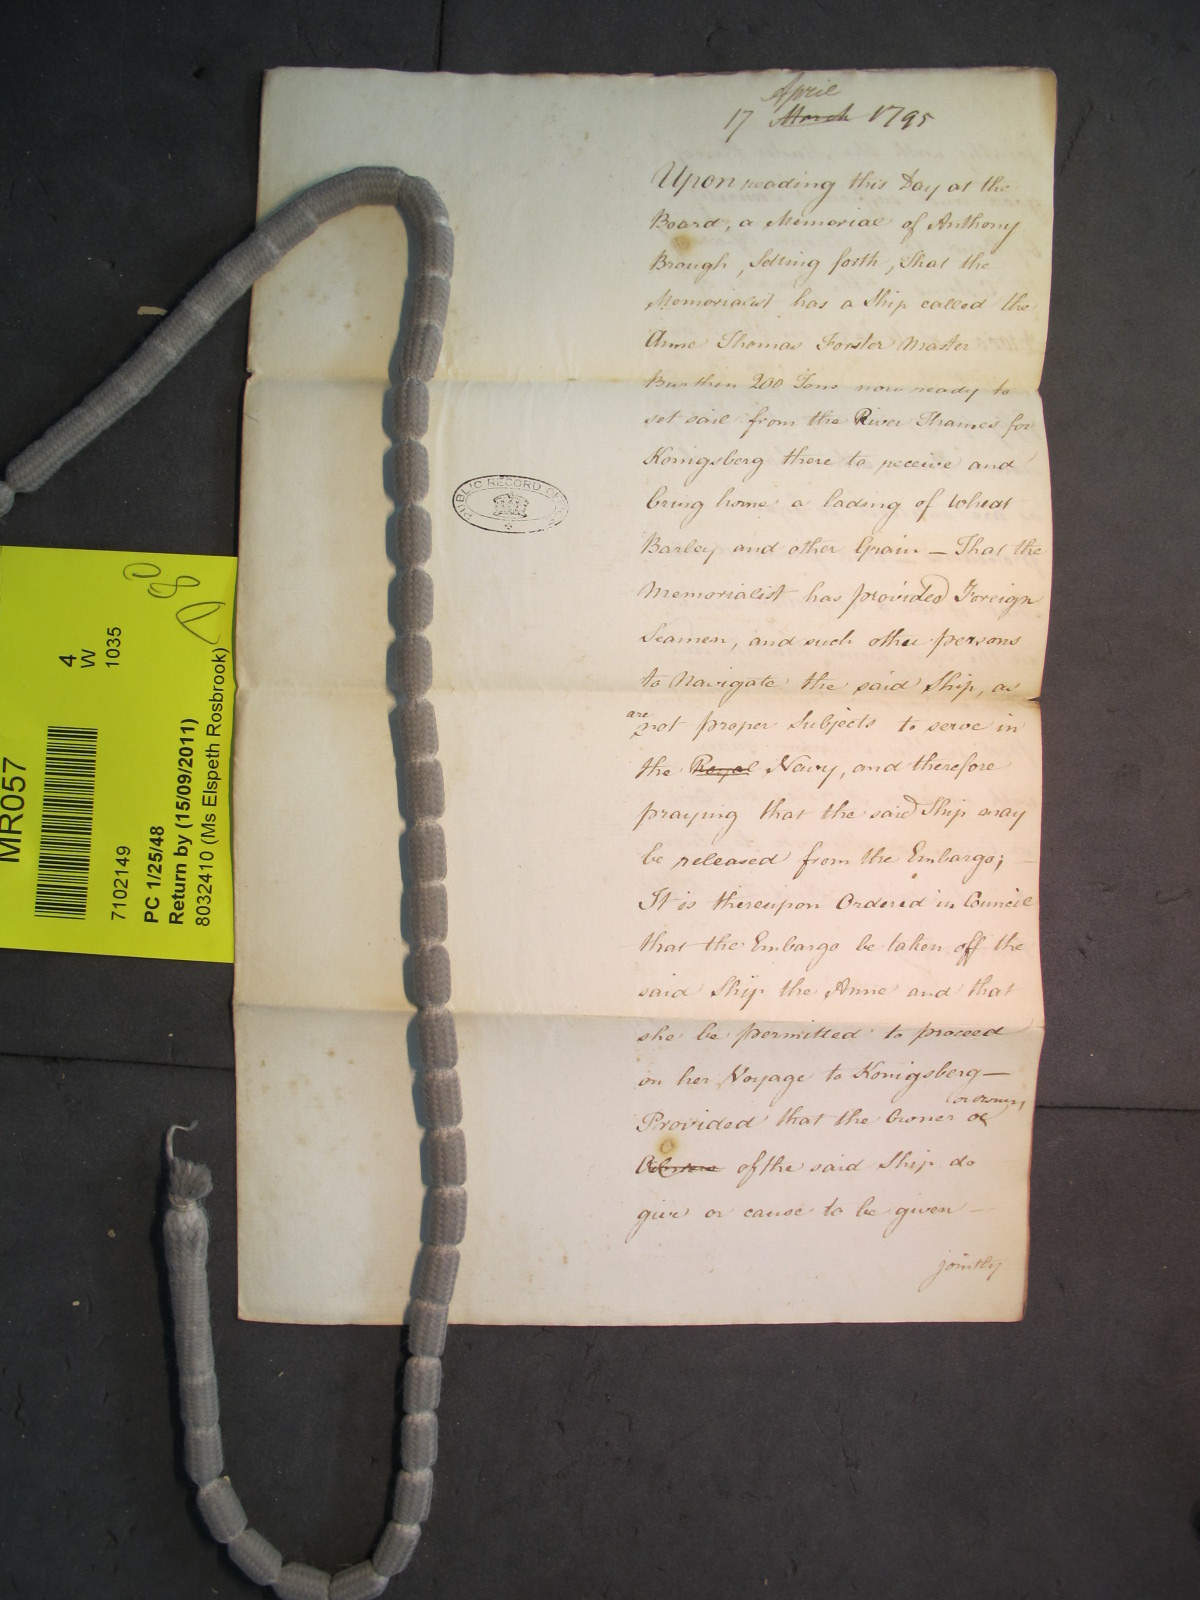 April
17 March 1795
Upon reading this Day at the
Board, a Memorial of Anthony
Brough, Setting forth, That the
Memorialist has a Ship called the
Anne Thomas Forster Master
Burthen 200 Tons now ready to
set sail from the River Thames for
Konigsberg there to receive and
bring home a lading of Wheat
Barley and other Grain — That the
Memorialist has provided Foreign
Seamen, and such other persons
to Navigate the said Ship, as
are
not proper Subjects to serve in
the Royal Navy, and therefore
praying that the said Ship may
be released from the Embargo;
It is thereupon Ordered in Council
that the Embargo be taken off the
said Ship the Anne and that
she be permitted to proceed
on her Voyage to Konigsberg —
or owners
Provided that the Owner or
of the said Ship do
give or cause to be given —
jointly
PUBLIC RECORD OFFICE
MR057
4
W
1035
7102149
PC 1/25/48
Return by (15/09/2011)
8032410 (Ms Elspeth Rosbrook)